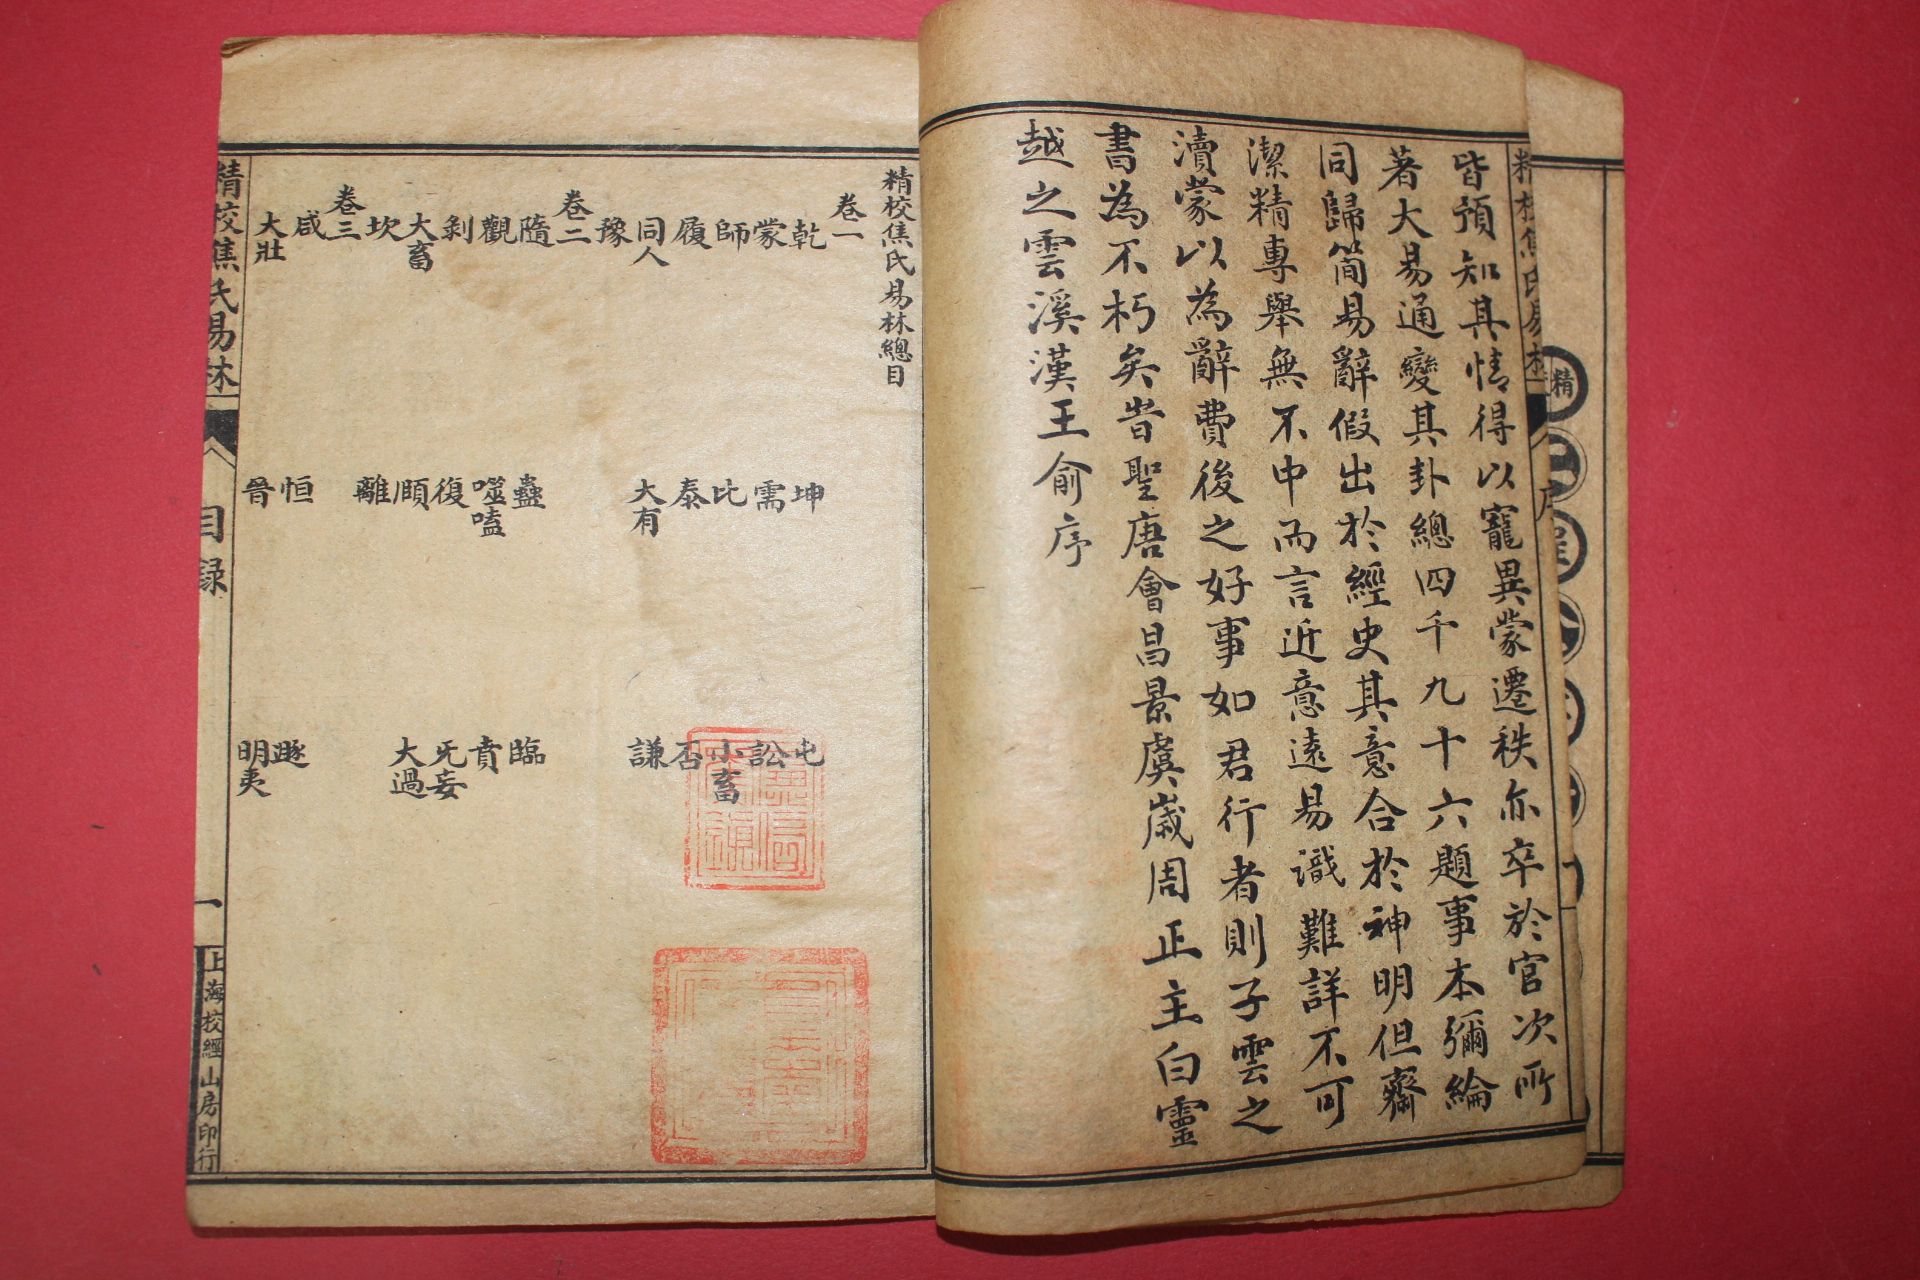 皆預知其情得以寵異蒙遷秩亦卒於官次所
著大易通變其卦總四千九十六題事本彌綸
同歸簡易辭假出於經史其意合於神明但齋
潔精專舉無不中而言近意遠易識難詳不可
瀆蒙以為辭費後之好事如君行者則子雲之
書為不朽矣昔聖唐會昌景虞歲周正主白靈
越之雲溪漢王俞序
精校焦氏易林總目
卷一
乾 坤 屯
蒙 需 訟
師 比 小畜
履 泰 否
同人 大有 謙
豫
卷二
隨 蠱 臨
觀 噬嗑 賁
剝 復 无妄
大畜 頤 大過
坎 離
卷三
咸 恒 遯
大壯 晉 明夷
精校焦氏易林
目錄
一
上海校經山房印行